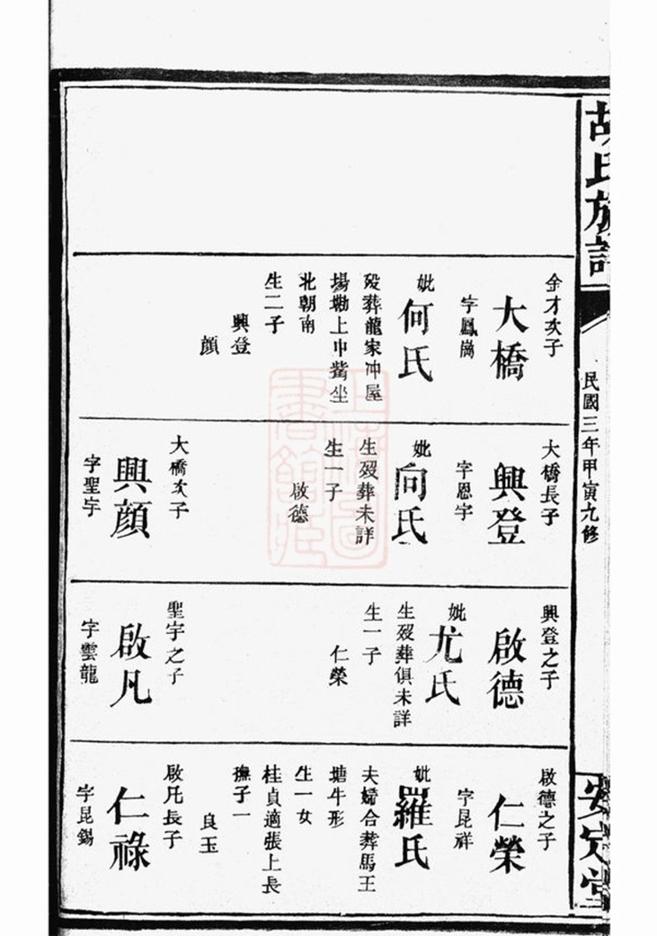 胡氏族譜
民國三年甲寅九修
安定堂
金才次子
大橋
字鳳崗
妣
何氏
歿葬龍家冲屋
場坳上巾觜坐
北朝南
生二子
興登
顔
大橋長子
興登
字恩宇
妣
向氏
生歿葬未詳
生一子
啟德
大橋次子
興顔
字聖宇
興登之子
啟德
妣
尤氏
生歿葬俱未詳
生一子
仁榮
聖宇之子
啟凡
字雲龍
啟德之子
仁榮
字昆祥
妣
羅氏
夫婦合葬馬王
塘牛形
生一女
桂貞適張上長
撫子一
良玉
啟凡長子
仁祿
字昆錫